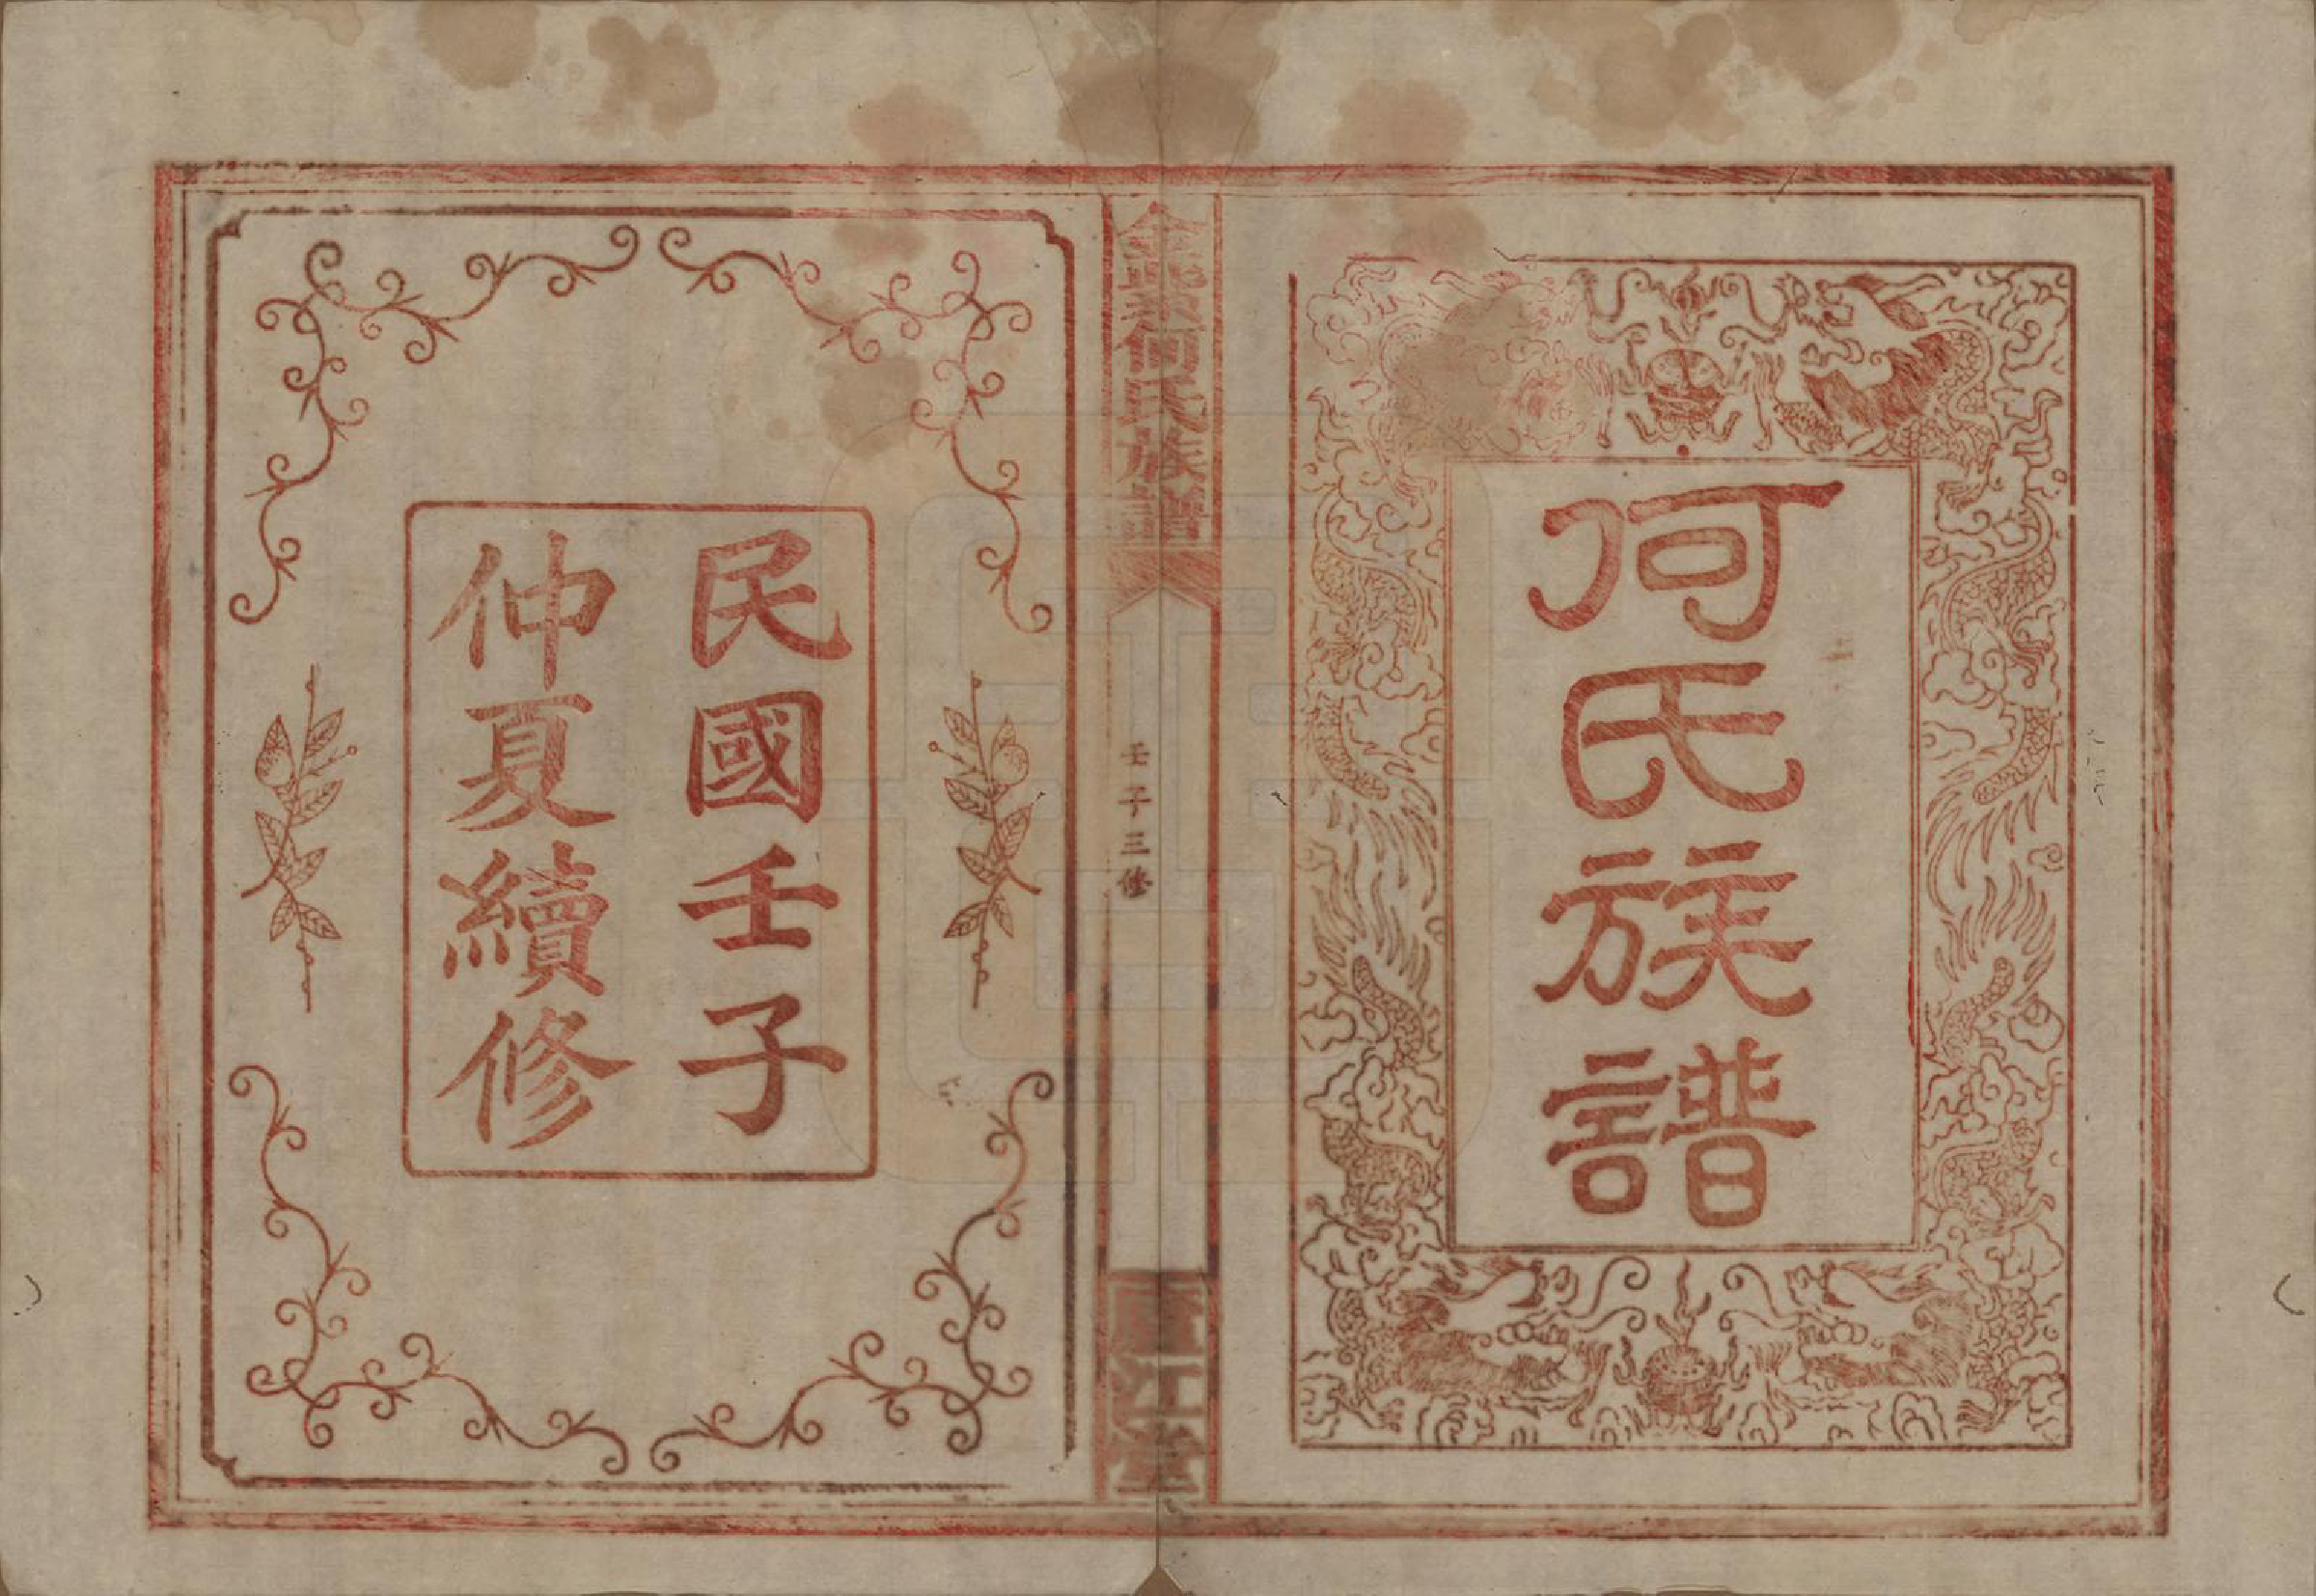 何氏族譜
何氏族譜
壬子三修
廬江堂
民國壬子
仲夏續修